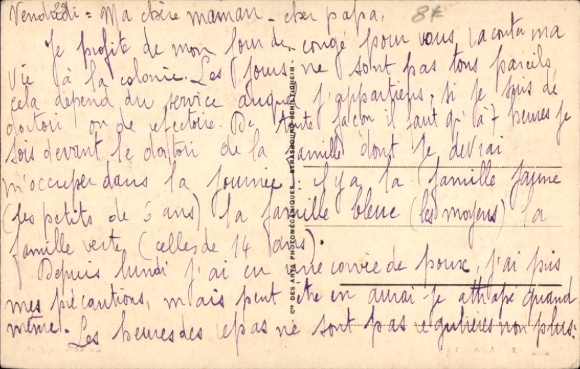 Vendredi - Ma chère maman - cher papa,
8€
Je profite de mon jour de congé pour vous raconter ma
vie à la colonie. Les jours ne sont pas tous pareils
cela dépend du service auquel j'appartiens, si je suis de
dortoir ou de refectoire. De toute façon il faut qu'à 7 heures je
sois devant le dortoir de la famille dont je devrai
m'occuper dans la journée : il y a la famille jaune
(les petits de 6 ans) la famille bleue (les moyens) la
famille verte, (celles de 14 ans).
Depuis lundi j'ai eu une corvée de poux, j'ai pris
mes précautions, mais peut être en aurai-je attrapé quand
même. Les heures des repas ne sont pas régulières non plus.
Cie DES ARTS PHOTOMÉCANIQUES - STRASBOURG-SCHILTIGHEIM